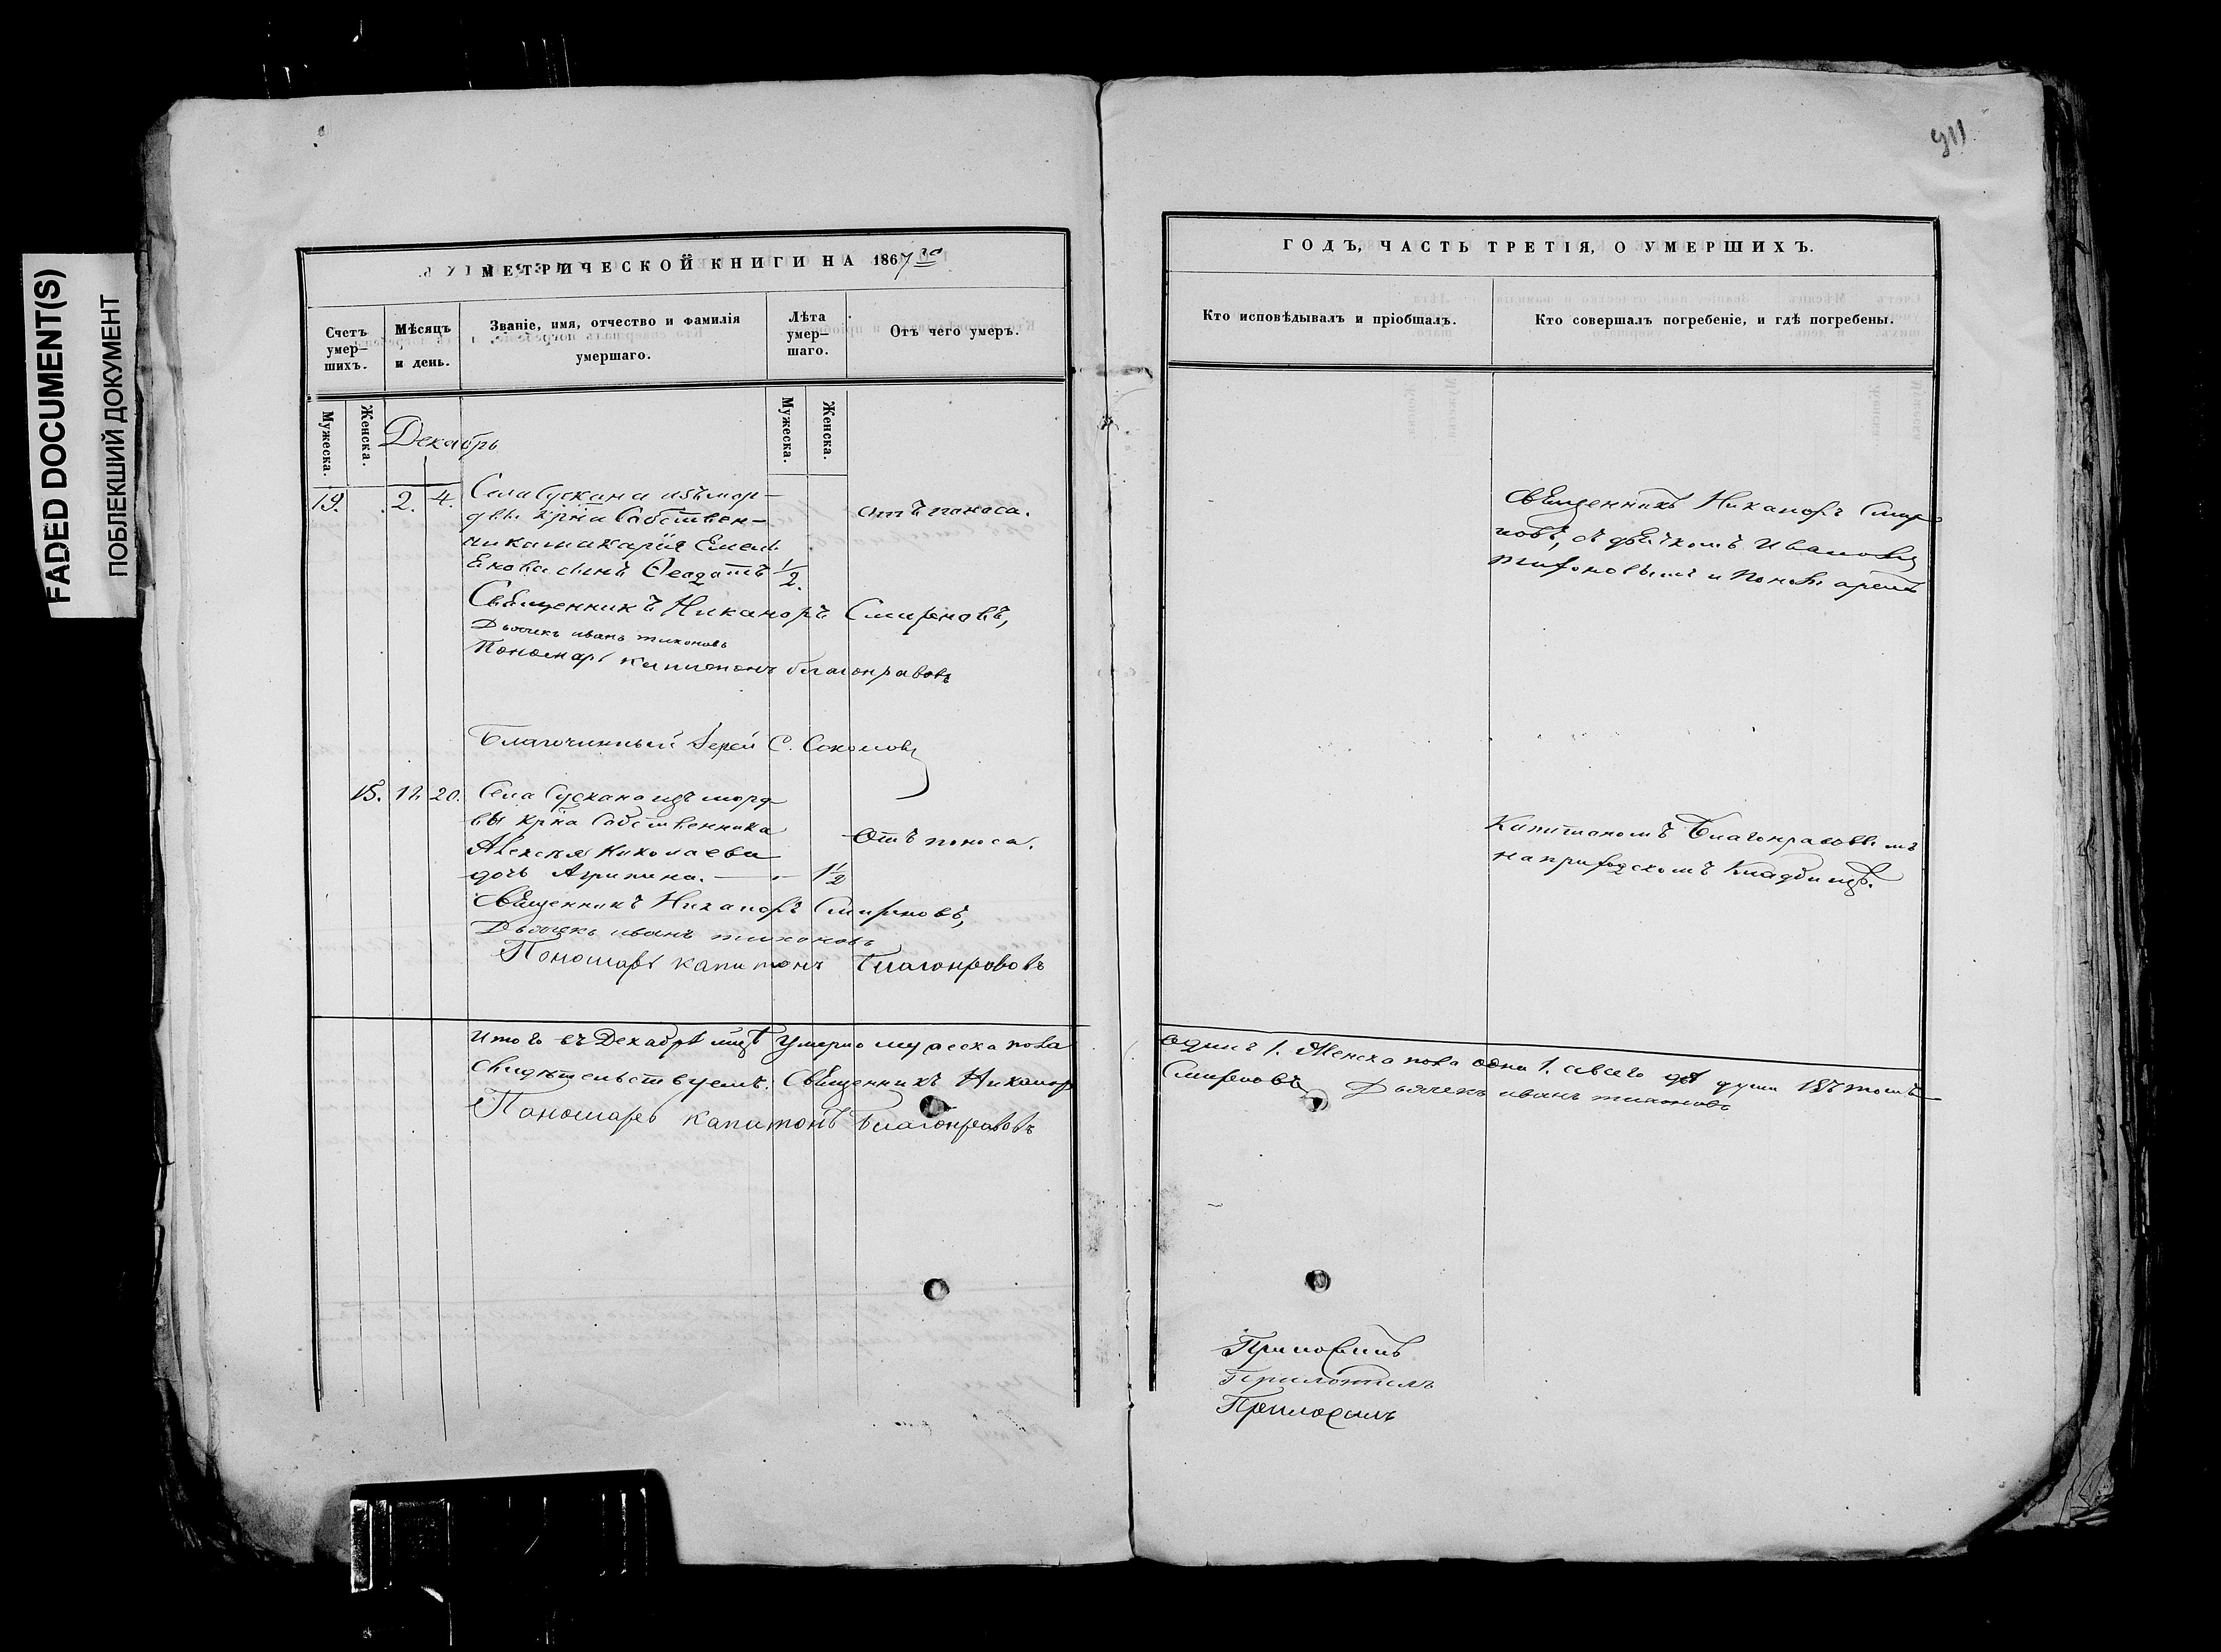 FADED DOCUMENT(S)
ПОБЛЕКШИЙ ДОКУМЕНТ
МЕТРИЧЕСКОЙ КНИГИ НА 1867 го
Счетъ умер–шихъ.
Мѣсяцъ и день.
Званіе, имя, отчество и фамилія умершаго.
Лѣта умер–шаго.
Отъ чего умеръ.
Мужеска.
Женска.
Мужеска.
Женска.
Декабрь
19. 2. 4. Села Сускана изъ мор–
двы крн҃а Собствен–
ника Макарія Емель
сынъ Ѳеодотъ 1/2.
отъ поноса.
Священникъ Никаноръ Смирновъ,
Дьячекъ иванъ тихоновъ
Пономарь капитонъ благонравовъ
Благочинный Іерей С. Соколовъ
15. 12. 20. Села Сускана изъ морд
вы крн҃а Собственника
Алексѣя Николаева
дочь Агрипина. — 1 1/2
Отъ поноса.
Священникъ Никаноръ Смирновъ,
Дьячекъ иванъ тихоновъ
Пономарь капитонъ Благонравовъ
Итого въ Декабрѣ мцѣ умерло мужеска пола
свидѣтельствуемъ: Священникъ Никанор
Пономарь капитонъ Благонравовъ
ГОДЪ, ЧАСТЬ ТРЕТІЯ, О УМЕРШИХЪ.
Кто исповѣдывалъ и пріобщалъ.
Кто совершалъ погребеніе, и гдѣ погребены.
Священникъ Никаноръ Смир
новъ, съ дьячкомъ Иваномъ
Тихоновымъ и Пономаремъ
Капитаномъ Благонравовымъ
на приходскомъ Кладбищѣ.
одинъ 1. Женска пола одна 1. а всего двѣ души въ томъ
Смирновъ Дьячекъ иванъ тихоновъ
Приложилъ